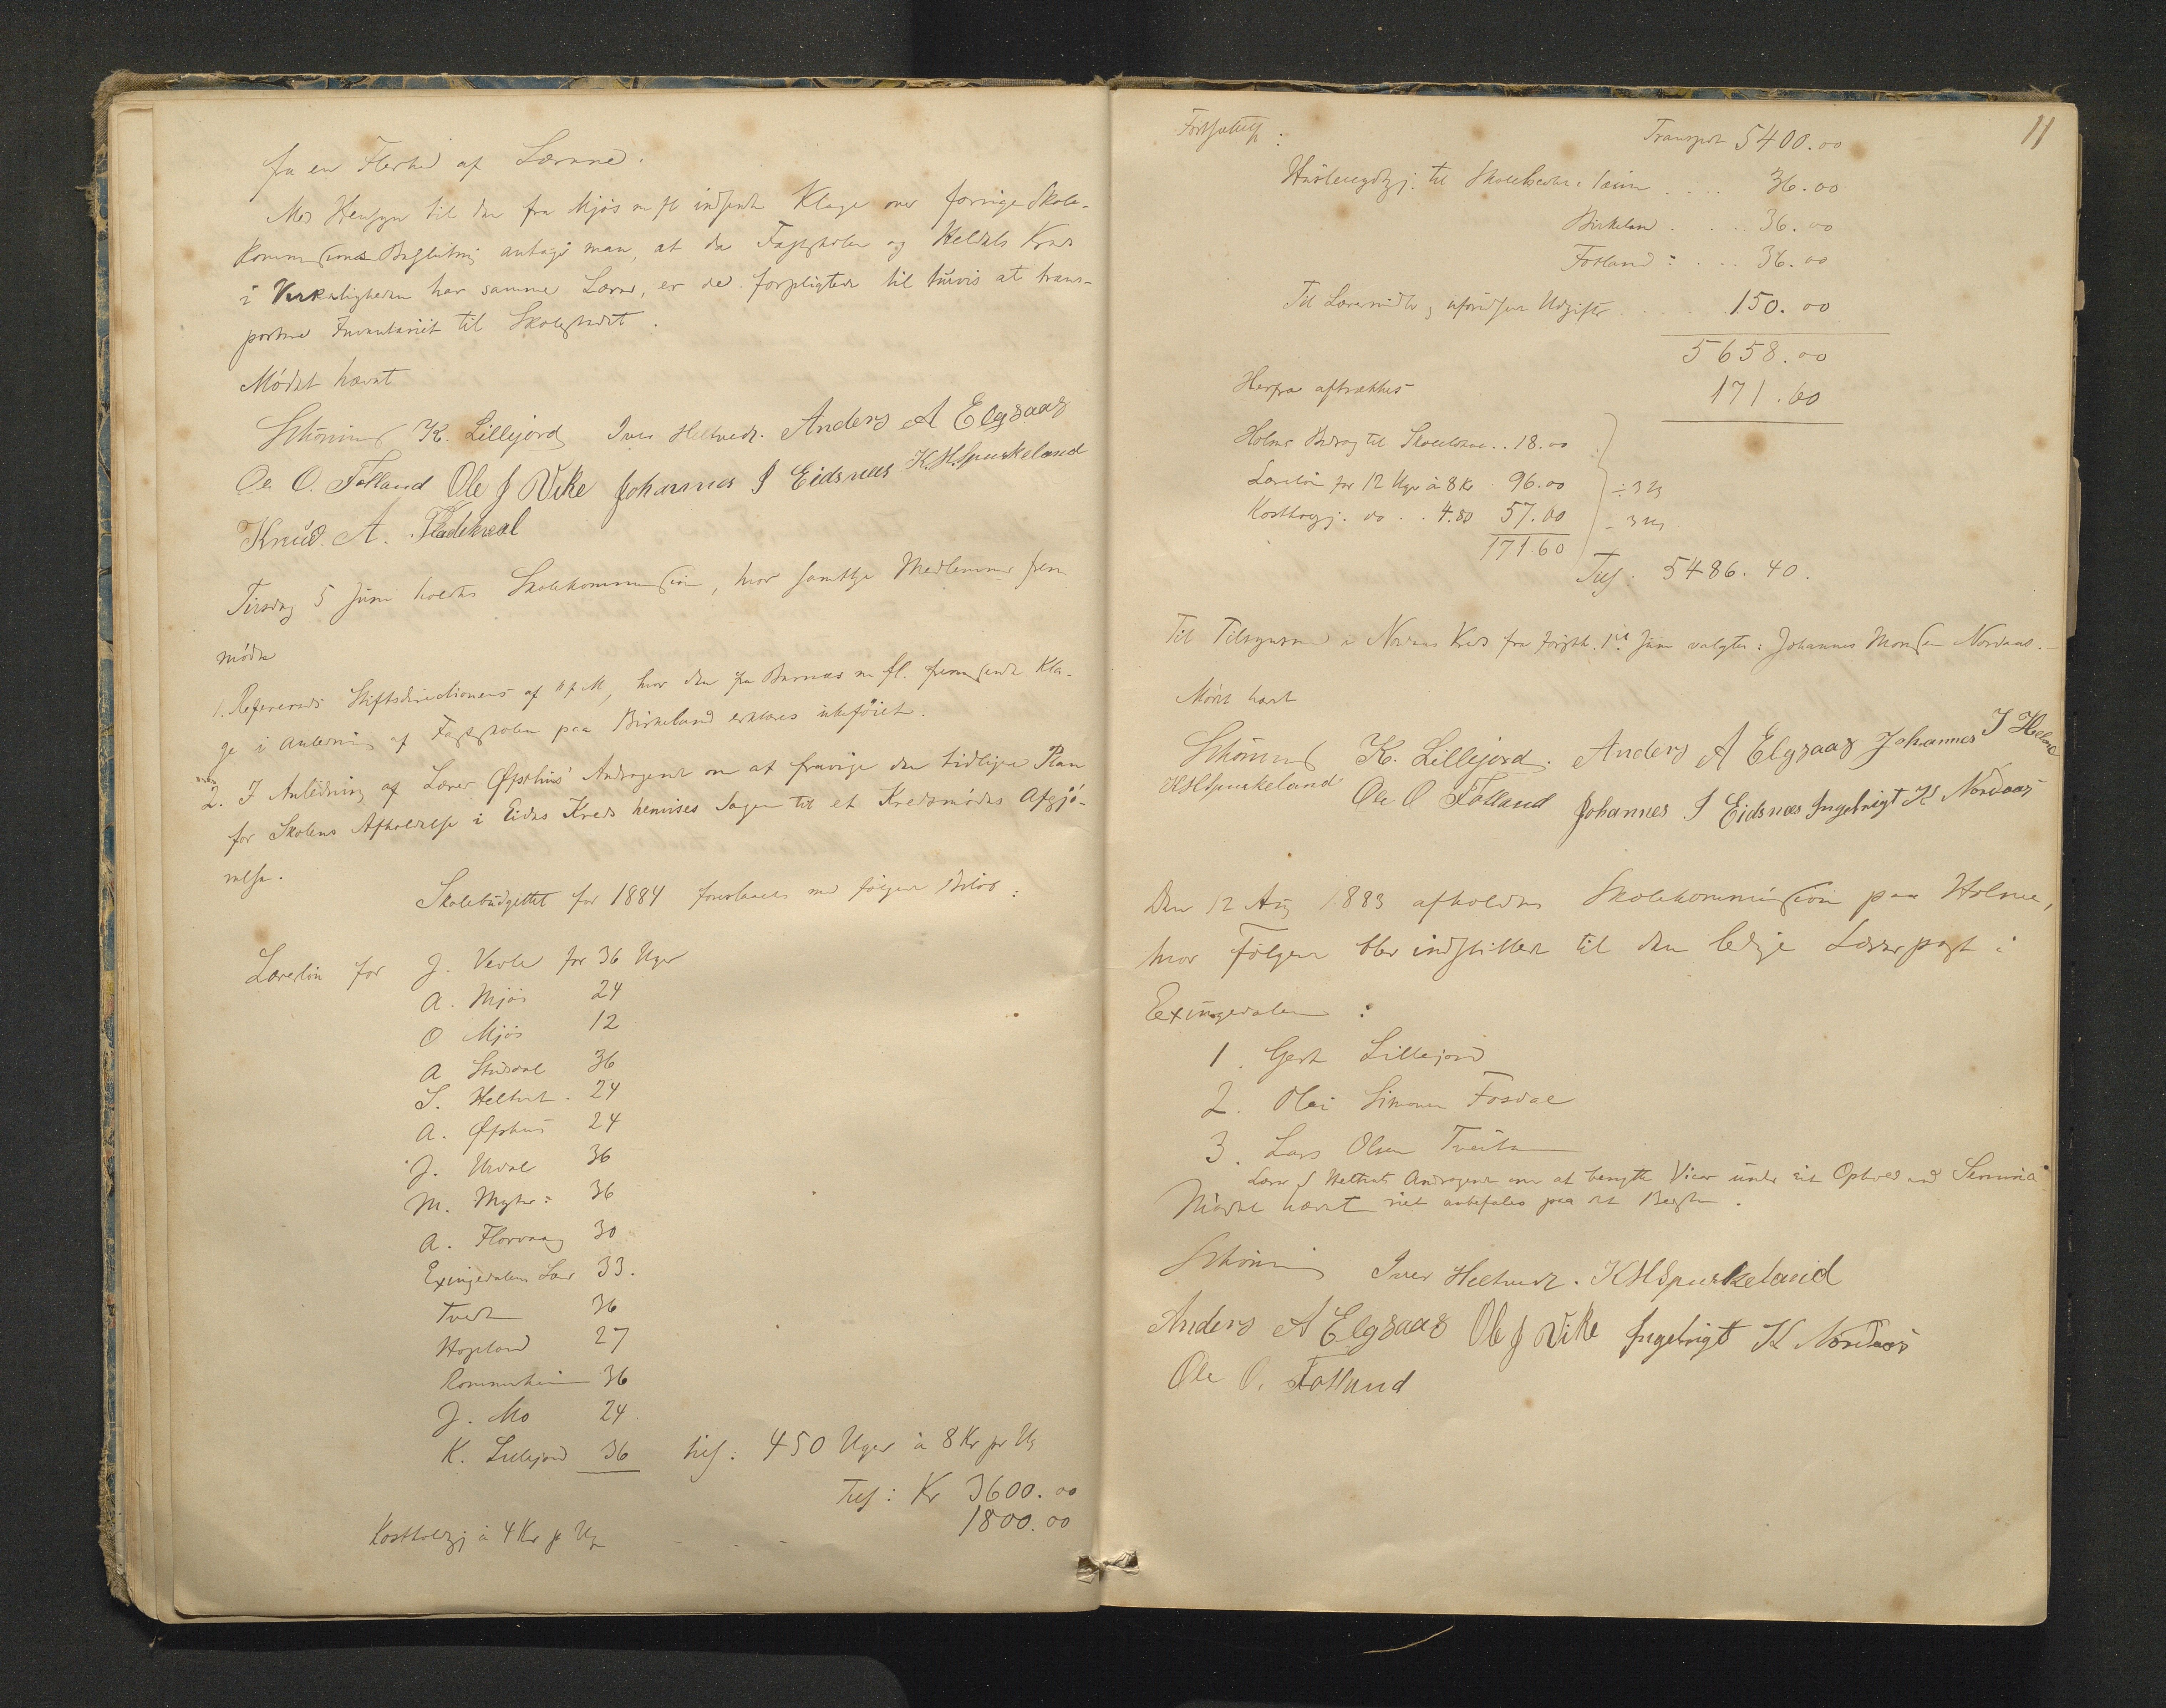 fra en Flerhed af Lærerne.
Med Hensyn til den fra Mjøs m fl indsendte Klage over forrige Skole-
kommissions Beslutning antager man, at da Fastskolen og Heldals Kreds
i Virkeligheden har samme Lærer, er de forpligtede til turvis at trans-
portere Inventariet til Skolestedet.
Mödet hævet
Schöning K. Lillejord Iver Heltvedt. Anders A Elgsaas
Ole O. Fotland Ole J Vike Johannes I Eidsnæs K.H.Spurkeland
Knud. A. Fladekval
Tirsdag 5 Juni holdtes Skolekommission, hvor samtlige Medlemmer frem
mödte
1. Refereredes Stiftsdirectionens af f M, hvor den fra Barnæs m fl. fremsendte Kla-
ge i Anledning af Fastskolen paa Birkeland erklæres ubeföiet.
2. I Anledning af Lærer Øpsthus' Andragende om at fravige den tidligere Plan
for Skolens Afholdelse i Eidsn Kreds henvises Sagen til et Kredsmödes Afgjö-
relse.
Skolebudgettet for 1884 foreslaaes med fölgende Belöb:
Lærerlön for J. Vevle for 36 Uger
A. Mjös 24
O Mjös 12
A Studdal 36
S. Heltvet. 24
A. Øpsthus 24
J. Urdal 36
M. Myhre: 36
A. Florvaag 30
Exingedalens Lær 33.
Tvedt 36
Hopland 27
Rommerheim 36
J. Mo 24
K. Lillejord 36 tils: 450 Uger à 8 Kr pr Ug
Tils: Kr 3600.00
Kostholdsgj à 4 Kr p Uge - - - 1800.00
11
Fortsættelse: Transport 5400.00
Husleiegodtgj. til Skolekredse: .... 36.00
Birkeland .... 36.00
Fotland: ... 36.00
Til Læremidler og uforudseede Udgifter ...... 150.00
5658.00
Herfra aftrækkes 171.60
Holmes Bidrag til Skolelokale.. 18.00
Lærerlön for 12 Uger à 8 Kr 96.00 ÷ 3 Ug
Kostholdsgj. do .. 4.80 57.60 - 3 Ug
171.60
Tils. 5486.40.
Til Tilsynsmand i Nordaas Kreds fra förstk. 1ste Juni valgtes: Johannes Monsen Nordaas.-
Mödet hævet
Schöning K. Lillejord. Anders A Elgsaas Johannes I Helland
KHSpurkeland Ole O Fotland Johannes I Eidsnæs Ingebrigt K Nordaas
Den 12 Aug 1883 afholdtes Skolekommission paa Holme,
hvor Fölgende blev indstillede til den ledige Lærerpost i
Exingedalen:
1. Gert Lillejord
2. Olai Simonsen Fosdal
3. Lars Olsen Tveiten
Lærer S Heltvets Andragende om at benytte Vicar under sit Ophold ved Seminari-
Mödet hævet riet anbefales paa det Bedste.
Schöning Iver Heltvedt. KHSpurkeland
Anders A Elgsaas Ole J Vike Ingebrigt K Nordaas
Ole O. Fotland